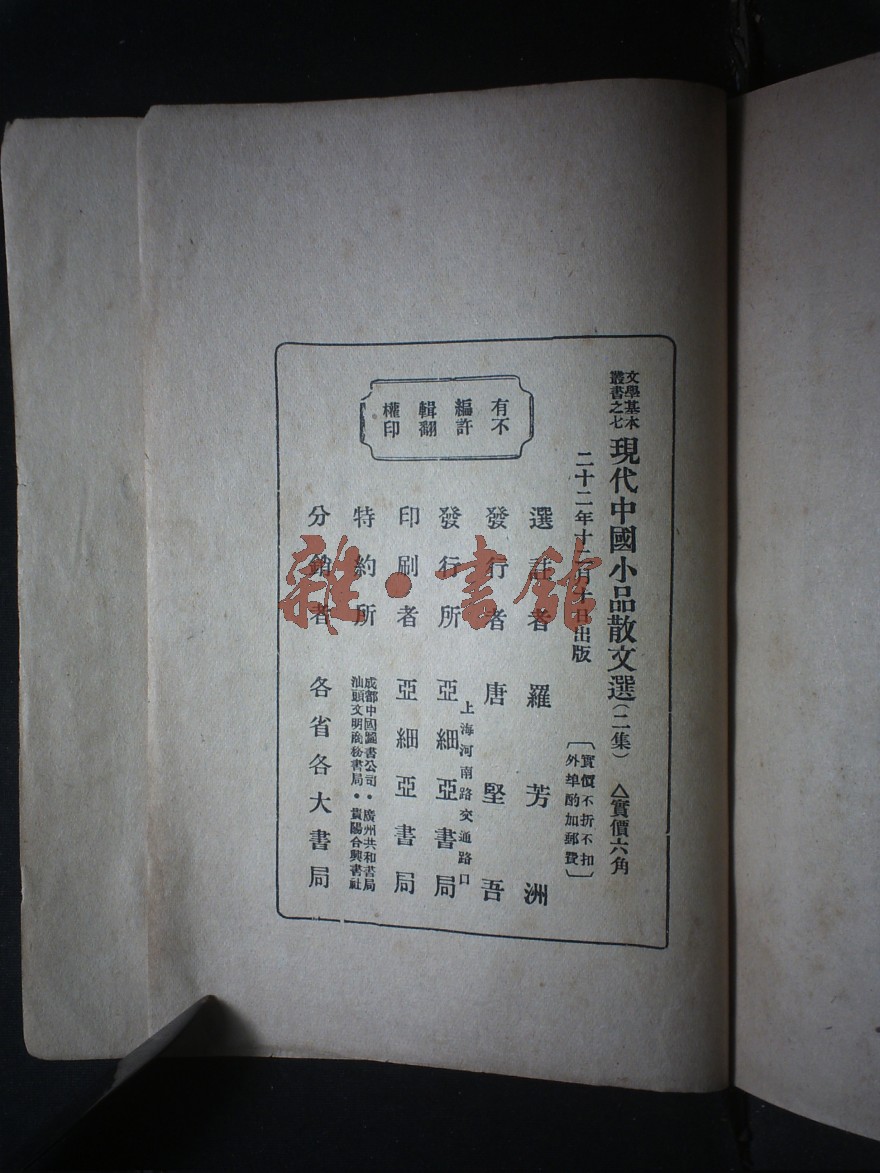 文學基本
叢書之七
現代中國小品散文選(二集) △實價六角
二十二年十二月十日出版
〔實價不折不扣
外埠酌加郵費〕
選註者 羅芳洲
發行者 唐堅吾
上海河南路交通路口
發行所 亞細亞書局
印刷者 亞細亞書局
特約所
成都中國圖書公司・廣州共和書局
汕頭文明商務書局・貴陽合興書社
分銷者 各省各大書局
有不
編許
輯翻
權印
雜・書館